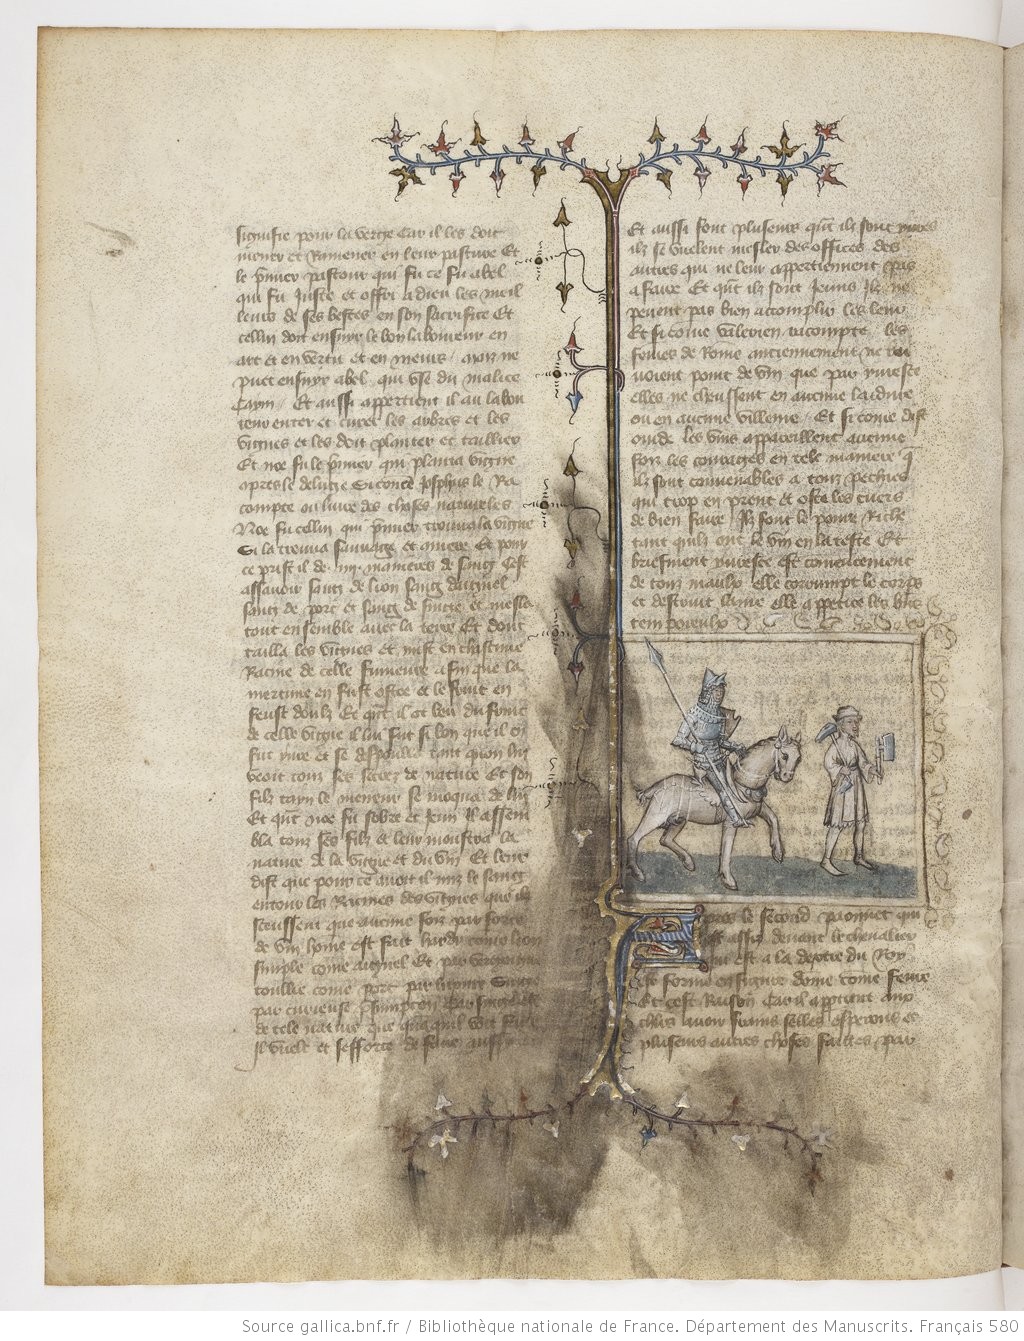 signifie pour la verge Car il les doit
mener et Ramener en leur pasture Et
le p̃mier pastour qui fu ce fu abel
qui fu juste et offri a dieu les meil
leurs de ses bestes en son sacrifice Et
cellui doit ensuyr le bon laboureur en
art et en vertu et en meurs / mais ne
puet ensuyr abel qui use du malice
Caym / Et aussi appertient il au labou
reur enter et curer les arbres et les
vignes et les doit planter et taillier
Et noe fu le p̃mier qui planta vigne
apres le deluge Si come josephus le Ra
compte ou livre des choses natureles
Noe fu cellui qui p̃mier trouva la vigne
Si la trouva sauvage et amere Et pour
ce prist il de .iiii. manieres de sang Cest
assavoir sang de lion sang daignel
sang de porc et sang de singe et mesla
tout ensemble avec la terre Et dont
tailla les vignes et mist en chascune
Racine de celle fumeure afin que la
mertume en fust ostee et le fruit en
feust doulx Et qñt il ot beu du fruit
de celle vigne il lui fut si bon que il en
fut yvre et se despoulla tant quon lui
veoit tous ses secrez de nature Et son
filz caym le meneur se moqua de lui
Et qñt noe fu sobre et jeun Il assem
bla tous ses filz et leur monstra la
nature de la vigne et du vin Et leur
dist que pour ce avoit il mis le sang
entour les Racines des vignes que ilz
sceussent que aucune fois par force
de vin home est fait hardy come lion
simple come aignel Et par
come porc par Singe
par curieuse p̃sumpcion Car singe est
de tele nature que quãqu il voit faire
Il vuelt et sefforce de faire aussi
Et aussi sont plusieurs qñt ilz sont yvres
ilz se vuelent mesler des offices des
autres qui ne leur appertiennent pas
a faire Et qñt ilz sont jeuns Ilz ne
pevent pas bien acomplir les leur
Et si come valerien racompte les
femes de Rome anciennement ne be
voient point de vin que par yvresce
elles ne cheussent en aucune laidure
ou en aucune villenie Et si come dist
ovide les vins appareillent aucune
fois les courages en tele maniere q̃
ilz sont convenables a tous pechiez
qui trop en prent et oste les cuers
de bien faire Ilz font le povre Riche
tant quil ont le vin en la teste Et
briefment yvresce est comencement
de tous maulx elle corrompt le corps
et destruit lame elle appetice les biẽs
temporeulx
Apres le second paonnet qui
est assis devant le chevalier
qui est a la destre du Roy
se forme en figure dome come fevre
Et cest Raison Car il appartient aux
chlrs avoir frains selles esperons et
plusieurs autres choses faictes par
Source gallica.bnf.fr / Bibliothèque nationale de France. Département des Manuscrits. Français 580